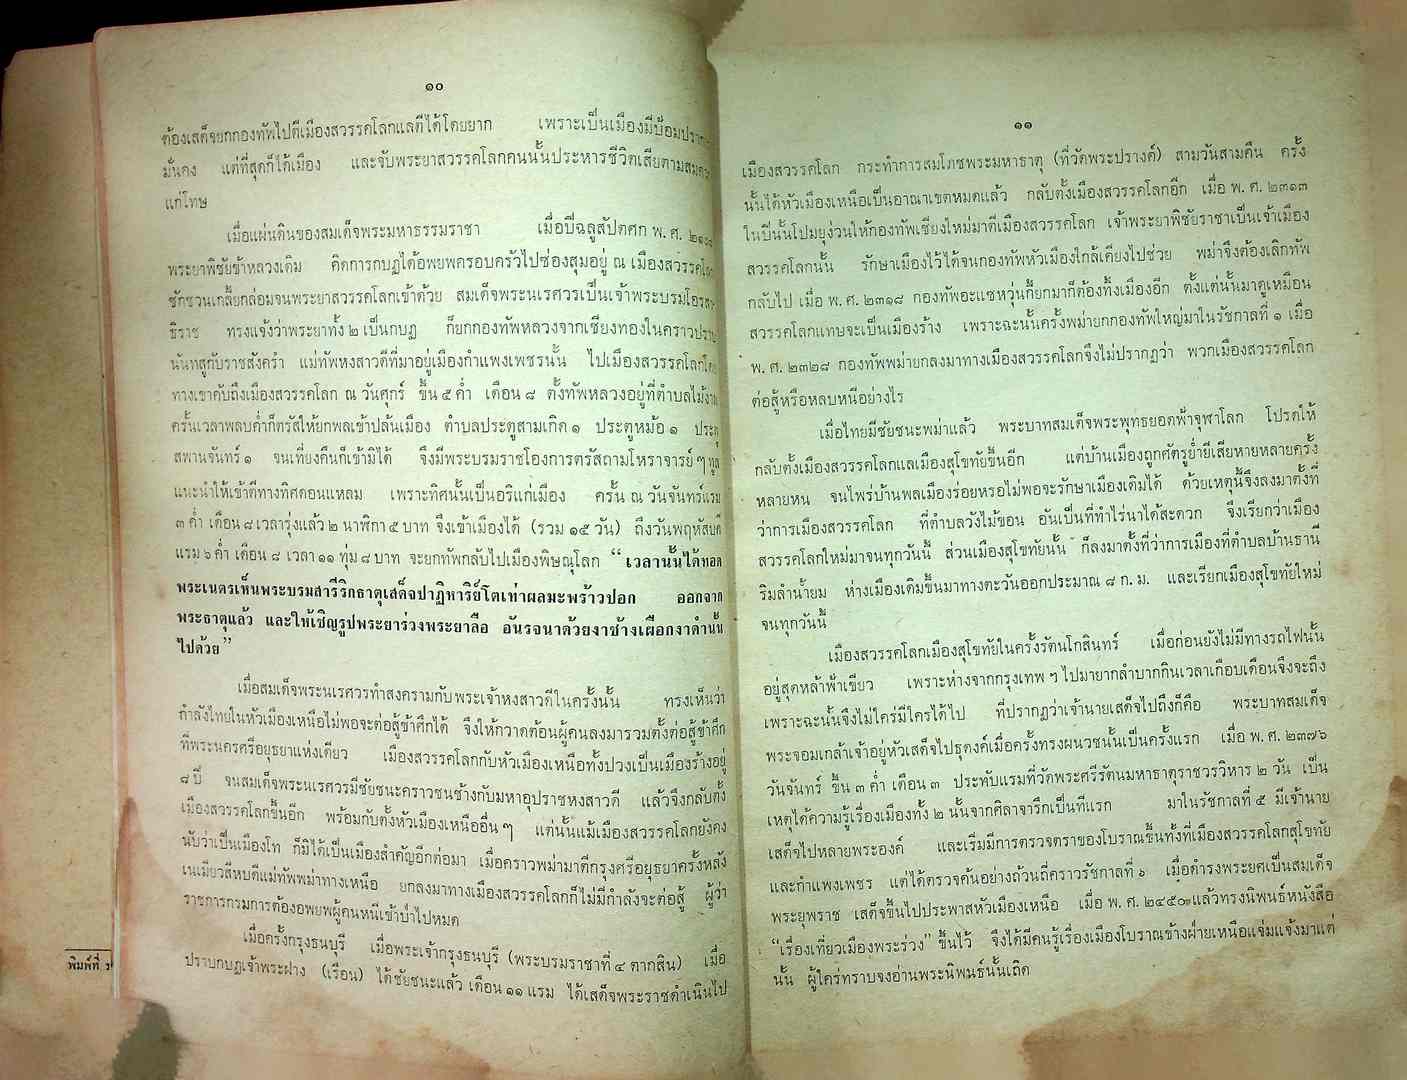 ๑๐
ต้องเสด็จยกกองทัพไปตีเมืองสวรรคโลกแลตีได้โดยยาก เพราะเป็นเมืองมีป้อม
มั่นคง แต่ที่สุดก็ได้เมือง และจับพระยาสวรรคโลกคนนั้นประหารชีวิตเสียตาม
แก่โทษ
เมื่อแผ่นดินของสมเด็จพระมหาธรรมราชา เมื่อปีฉลูสัปตศก พ. ศ.
พระยาพิชัยข้าหลวงเดิม คิดการกบฏได้อพยพครอบครัวไปซ่องสุมอยู่ ณ เมือง
ชักชวนเกลี้ยกล่อมจนพระยาสวรรคโลกเข้าด้วย สมเด็จพระนเรศวรเป็นเจ้าพระบรม
ธิราช ทรงแจ้งว่าพระยาทั้ง ๒ เป็นกบฏ ก็ยกกองทัพหลวงจากเชียงทองในคราว
นันทสูกับราชสังครำ แม่ทัพหงสาวดีที่มาอยู่เมืองกำแพงเพชรนั้น ไปเมืองสวรรคโลก
ทางเขาคับถึงเมืองสวรรคโลก ณ วันศุกร์ ขึ้น ๕ ค่ำ เดือน ๘ ตั้งทัพหลวงอยู่ที่ตำบล
ครั้นเวลาพลบค่ำก็ตรัสให้ยกพลเข้าปล้นเมือง ตำบลประตูสามเกิด ๑ ประตูหม้อ ๑
สพานจันทร์ ๑ จนเที่ยงคืนก็เข้ามิได้ จึงมีพระบรมราชโองการตรัสถามโหราจารย์ ๆ ทูล
แนะนำให้เข้าตีทางทิศดอนแหลม เพราะทิศนั้นเป็นอริแก่เมือง ครั้น ณ วันจันทร์แรม
๓ ค่ำ เดือน ๘ เวลารุ่งแล้ว ๒ นาฬิกา ๕ บาท จึงเข้าเมืองได้ (รวม ๑๕ วัน) ถึงวันพฤหัสบดี
แรม ๖ ค่ำ เดือน ๘ เวลา ๑๑ ทุ่ม ๘ บาท จะยกทัพกลับไปเมืองพิษณุโลก “เวลานั้นได้ทอด
พระเนตรเห็นพระบรมสารีริกธาตุเสด็จปาฏิหาริย์โตเท่าผลมะพร้าวปอก ออกจาก
พระธาตุแล้ว และให้เชิญรูปพระยาร่วงพระยาลือ อันรจนาด้วยงาช้างเผือกงาดำนั้น
ไปด้วย”
เมื่อสมเด็จพระนเรศวรทำสงครามกับพระเจ้าหงสาวดีในครั้งนั้น ทรงเห็นว่า
กำลังไทยในหัวเมืองเหนือไม่พอจะต่อสู้ข้าศึกได้ จึงให้กวาดต้อนผู้คนลงมารวมตั้งต่อสู้ข้าศึก
ที่พระนครศรีอยุธยาแห่งเดียว เมืองสวรรคโลกกับหัวเมืองเหนือทั้งปวงเป็นเมืองร้างอยู่
๘ ปี จนสมเด็จพระนเรศวรมีชัยชนะคราวชนช้างกับมหาอุปราชหงสาวดี แล้วจึงกลับตั้ง
เมืองสวรรคโลกขึ้นอีก พร้อมกับตั้งหัวเมืองเหนืออื่น ๆ แต่นั้นแม้เมืองสวรรคโลกยังคง
นับว่าเป็นเมืองโท ก็มิได้เป็นเมืองสำคัญอีกต่อมา เมื่อคราวพม่ามาตีกรุงศรีอยุธยาครั้งหลัง
เนเมียวสีหบดีแม่ทัพพม่าทางเหนือ ยกลงมาทางเมืองสวรรคโลกก็ไม่มีกำลังจะต่อสู้ ผู้ว่า
ราชการกรมการต้องอพยพผู้คนหนีเข้าป่าไปหมด
เมื่อครั้งกรุงธนบุรี เมื่อพระเจ้ากรุงธนบุรี (พระบรมราชาที่ ๔ ตากสิน) เมื่อ
ปราบกบฏเจ้าพระฝาง (เรือน) ได้ชัยชนะแล้ว เดือน ๑๑ แรม ได้เสด็จพระราชดำเนินไป
พิมพ์ที่
๑๑
เมืองสวรรคโลก กระทำการสมโภชพระมหาธาตุ (ที่วัดพระปรางค์) สามวันสามคืน ครั้ง
นั้นได้หัวเมืองเหนือเป็นอาณาเขตหมดแล้ว กลับตั้งเมืองสวรรคโลกอีก เมื่อ พ. ศ. ๒๓๑๓
ในปีนั้นโปมยุง่วนให้กองทัพเชียงใหม่มาตีเมืองสวรรคโลก เจ้าพระยาพิชัยราชาเป็นเจ้าเมือง
สวรรคโลกนั้น รักษาเมืองไว้ได้จนกองทัพหัวเมืองใกล้เคียงไปช่วย พม่าจึงต้องเลิกทัพ
กลับไป เมื่อ พ. ศ. ๒๓๑๘ กองทัพอะแซหวุ่นกี้ยกมาก็ต้องทิ้งเมืองอีก ตั้งแต่นั้นมาดูเหมือน
สวรรคโลกแทบจะเป็นเมืองร้าง เพราะฉะนั้นครั้งพม่ายกกองทัพใหญ่มาในรัชกาลที่ ๑ เมื่อ
พ. ศ. ๒๓๒๘ กองทัพพม่ายกลงมาทางเมืองสวรรคโลกจึงไม่ปรากฏว่า พวกเมืองสวรรคโลก
ต่อสู้หรือหลบหนีอย่างไร
เมื่อไทยมีชัยชนะพม่าแล้ว พระบาทสมเด็จพระพุทธยอดฟ้าจุฬาโลก โปรดให้
กลับตั้งเมืองสวรรคโลกแลเมืองสุโขทัยขึ้นอีก แต่บ้านเมืองถูกศัตรูย่ำยีเสียหายหลายครั้ง
หลายหน จนไพร่บ้านพลเมืองร่อยหรอไม่พอจะรักษาเมืองเดิมได้ ด้วยเหตุนั้นจึงลงมาตั้งที่
ว่าการเมืองสวรรคโลก ที่ตำบลวังไม้ขอน อันเป็นที่ทำไร่นาได้สะดวก จึงเรียกว่าเมือง
สวรรคโลกใหม่มาจนทุกวันนี้ ส่วนเมืองสุโขทัยนั้น ก็ลงมาตั้งที่ว่าการเมืองที่ตำบลบ้านธานี
ริมลำน้ำยม ห่างเมืองเดิมขึ้นมาทางตะวันออกประมาณ ๘ ก. ม. และเรียกเมืองสุโขทัยใหม่
จนทุกวันนี้
เมืองสวรรคโลกเมืองสุโขทัยในครั้งรัตนโกสินทร์ เมื่อก่อนยังไม่มีทางรถไฟนั้น
อยู่สุดหล้าฟ้าเขียว เพราะห่างจากกรุงเทพ ฯ ไปมายากลำบากกินเวลาเกือบเดือนจึงจะถึง
เพราะฉะนั้นจึงไม่ใคร่มีใครได้ไป ที่ปรากฏว่าเจ้านายเสด็จไปถึงก็คือ พระบาทสมเด็จ
พระจอมเกล้าเจ้าอยู่หัวเสด็จไปธุดงค์เมื่อครั้งทรงผนวชนั้นเป็นครั้งแรก เมื่อ พ. ศ. ๒๓๗๖
วันจันทร์ ขึ้น ๓ ค่ำ เดือน ๓ ประทับแรมที่วัดพระศรีรัตนมหาธาตุราชวรวิหาร ๒ วัน เป็น
เหตุได้ความรู้เรื่องเมืองทั้ง ๒ นั้นจากศิลาจารึกเป็นทีแรก มาในรัชกาลที่ ๕ มีเจ้านาย
เสด็จไปหลายพระองค์ และเริ่มมีการตรวจตราของโบราณขึ้นทั้งที่เมืองสวรรคโลกสุโขทัย
และกำแพงเพชร แต่ได้ตรวจค้นอย่างถ้วนถี่คราวรัชกาลที่ ๖ เมื่อดำรงพระยศเป็นสมเด็จ
พระยุพราช เสด็จขึ้นไปประพาสหัวเมืองเหนือ เมื่อ พ. ศ. ๒๔๕๐ แล้วทรงนิพนธ์หนังสือ
“เรื่องเที่ยวเมืองพระร่วง” ขึ้นไว้ จึงได้มีคนรู้เรื่องเมืองโบราณข้างฝ่ายเหนือแจ่มแจ้งมาแต่
นั้น ผู้ใคร่ทราบจงอ่านพระนิพนธ์นั้นเถิด